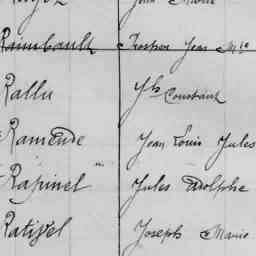 Raimbault Prosper Jean Mie
Rallu Jh Constant
Ramende Jean Louis Jules
Rapinel Jules Adolphe
Rativel Joseph Marie